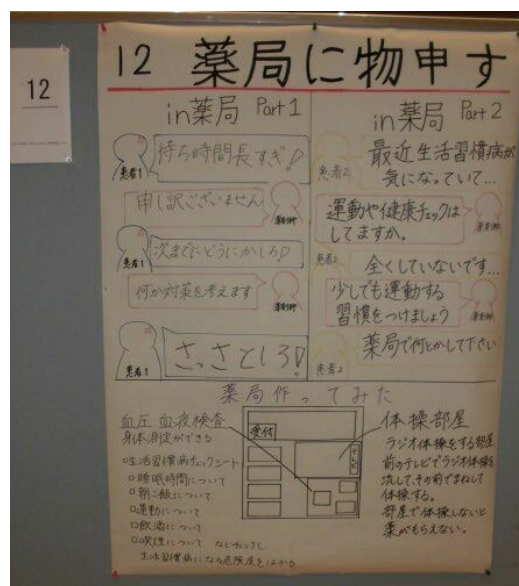 12
12 薬局に物申す
in薬局 Part 1
患者1
待ち時間長すぎ!
申し訳ございません
薬剤師
患者1
次までにどうにかしろ!
何か対策を考えます
薬剤師
患者1
さっさとしろ!
in薬局 Part 2
患者2
最近生活習慣病が
気になっていて…
運動や健康チェックは
してますか。
薬剤師
患者2
全くしていないです…
少しでも運動する
習慣をつけましょう
薬剤師
患者2
薬局で何とかして下さい
薬局作ってみた
血圧 血液検査
身体測定ができる
○生活習慣病チェックシート
□睡眠時間について
□朝ご飯について
□運動について
□飲酒について
□喫煙について などチェックし
生活習慣病になる危険度をはかる
受付
テレビ
体操部屋
ラジオ体操をする部屋
前のテレビでラジオ体操を
流して、その前でまねして
体操する。
部屋で体操しないと
薬がもらえない。